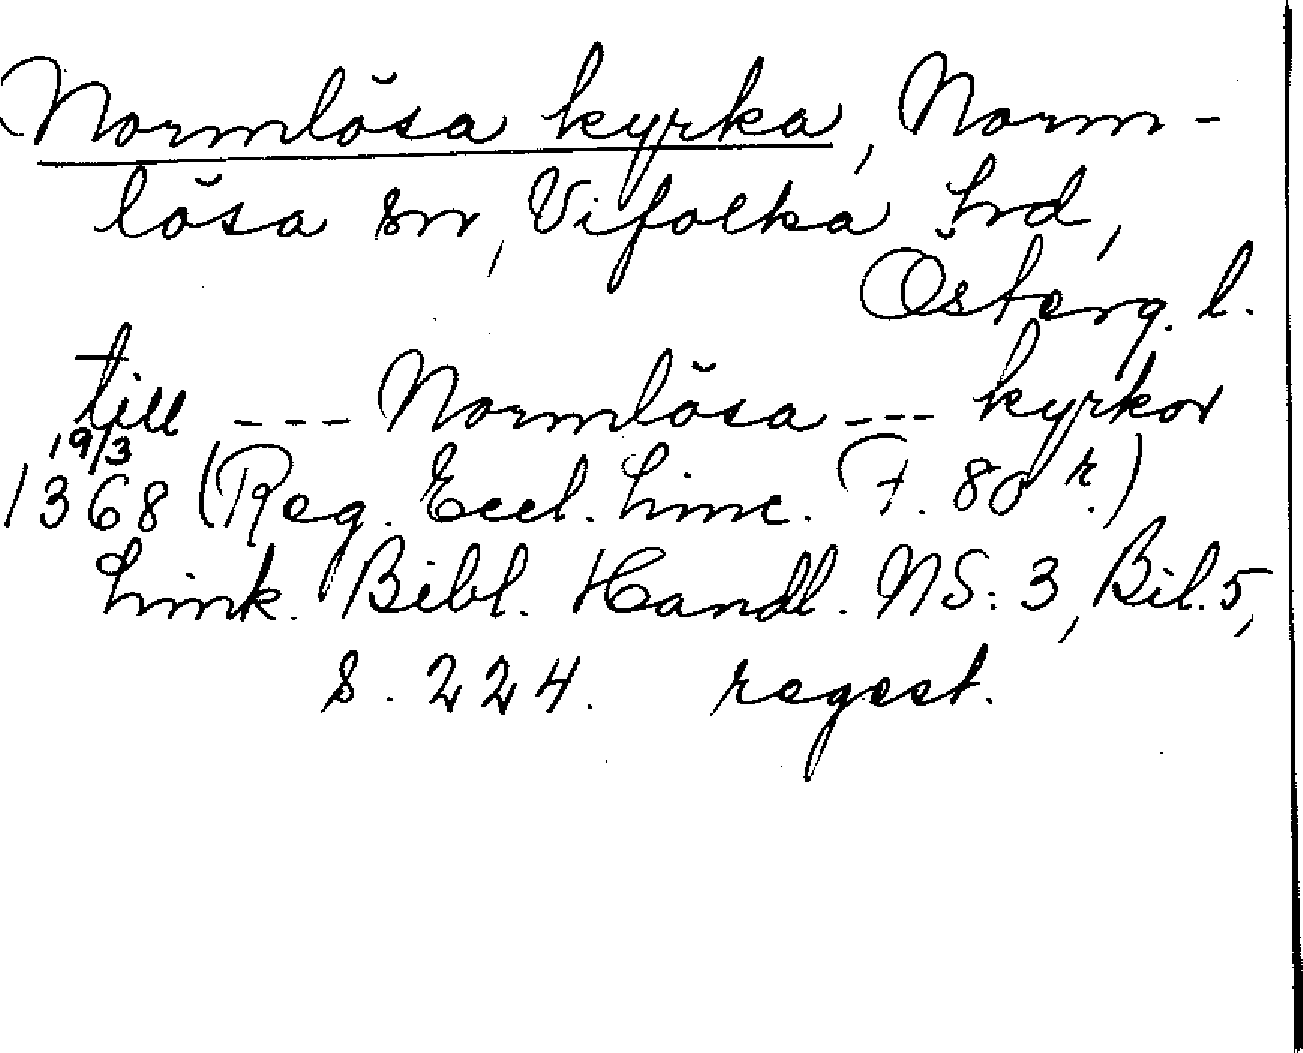 Normlösa kyrka, Norm-
lösa sn, Vifolka hrd,
Österg. l.
till --- Normlösa --- kyrkor
19/3
1368 (Reg. Eccl. Linc. F. 80 r.)
Link. Bibl. Handl. NS: 3, Bil. 5,
s. 224. regest.